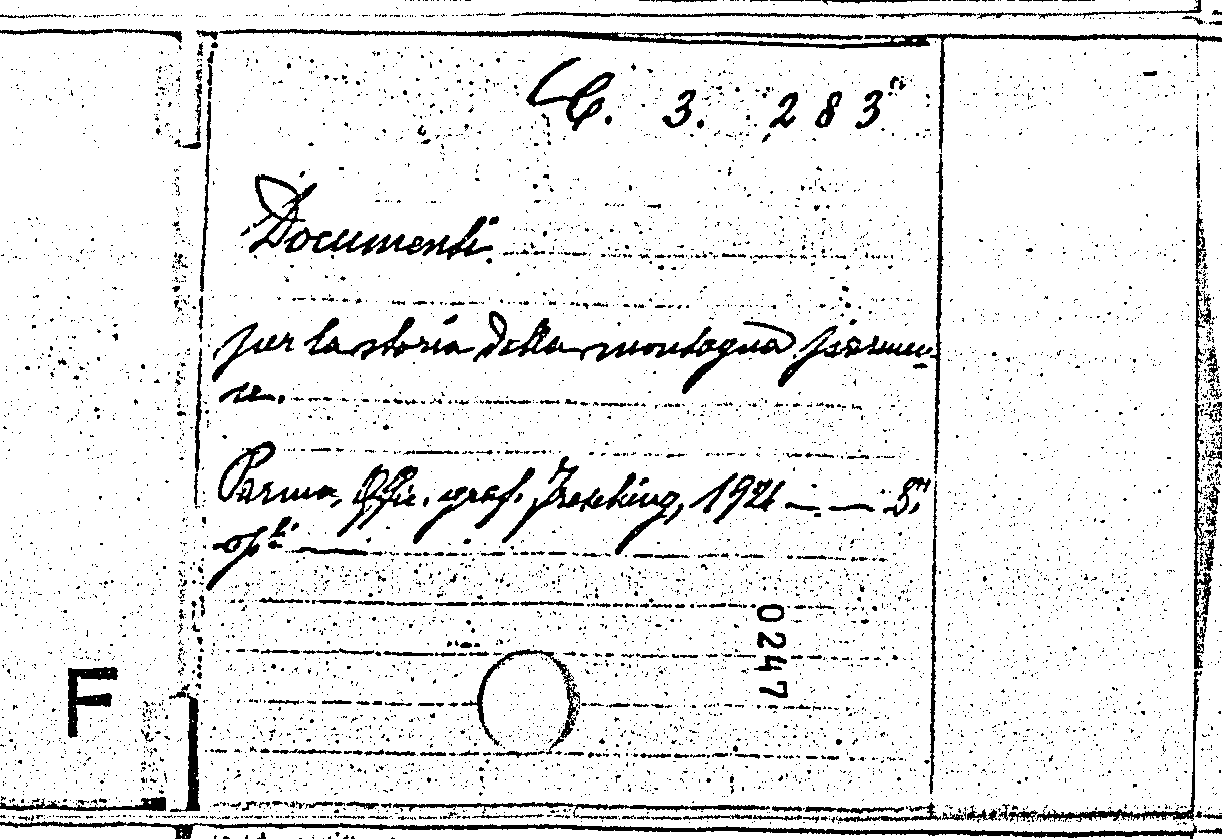 C. 3. 283
Documenti
per la storia della montagna parmen-
se.
Parma, Offic. graf. Fresching, 1921 — — 8.°
op.
0247
F